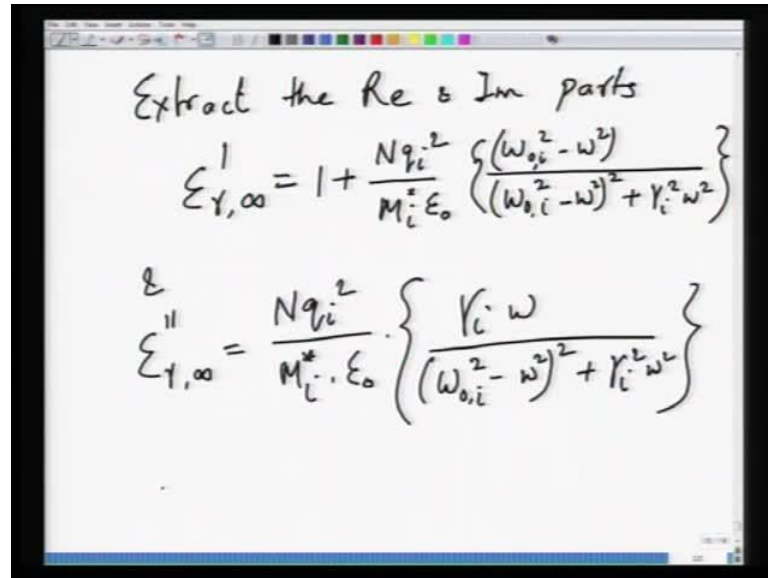 Extract the Re & Im parts
ε′_{r,∞} = 1 + \frac{N q_i^2}{M_i^* ε_0} \left\{ \frac{(ω_{0,i}^2 - ω^2)}{(ω_{0,i}^2 - ω^2)^2 + γ_i^2 ω^2} \right\}
&
ε″_{r,∞} = \frac{N q_i^2}{M_i^* · ε_0} · \left\{ \frac{γ_i · ω}{(ω_{0,i}^2 - ω^2)^2 + γ_i^2 ω^2} \right\}